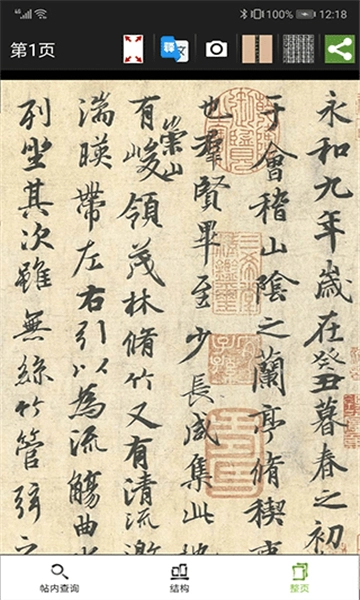 4G 100% 12:18
第1页
释 文
永和九年歲在癸丑暮春之初
于會稽山陰之蘭亭脩稧
也羣賢畢至少長咸集此
有崇山峻領茂林脩竹又有清流激
湍暎帶左右引以為流觴曲
列坐其次雖無絲竹管弦之
帖内查询 结构 整页